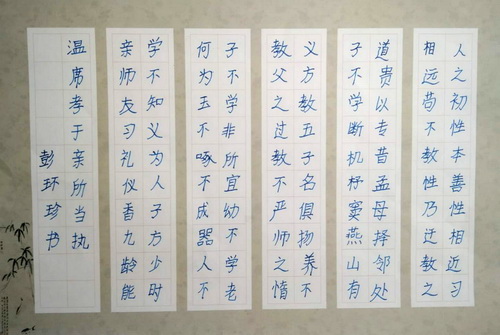 人之初性本善性相近习
相远苟不教性乃迁教之
道贵以专昔孟母择邻处
子不学断机杼窦燕山有
义方教五子名俱扬养不
教父之过教不严师之惰
子不学非所宜幼不学老
何为玉不啄不成器人不
学不知义为人子方少时
亲师友习礼仪香九龄能
温席孝于亲所当执
彭环珍书